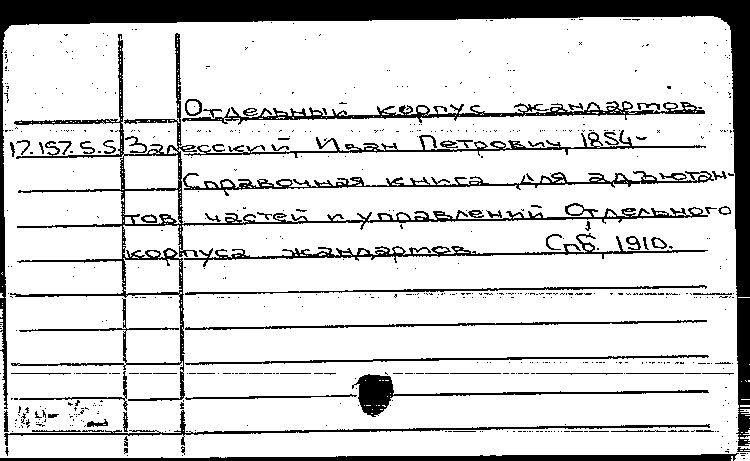 Отдельный корпус жандармов.
17.157.S.S. Залесский, Иван Петрович, 1854-
Справочная книга для адъютан-
тов частей и управлений Отдельного
корпуса жандармов. Спб, 1910.